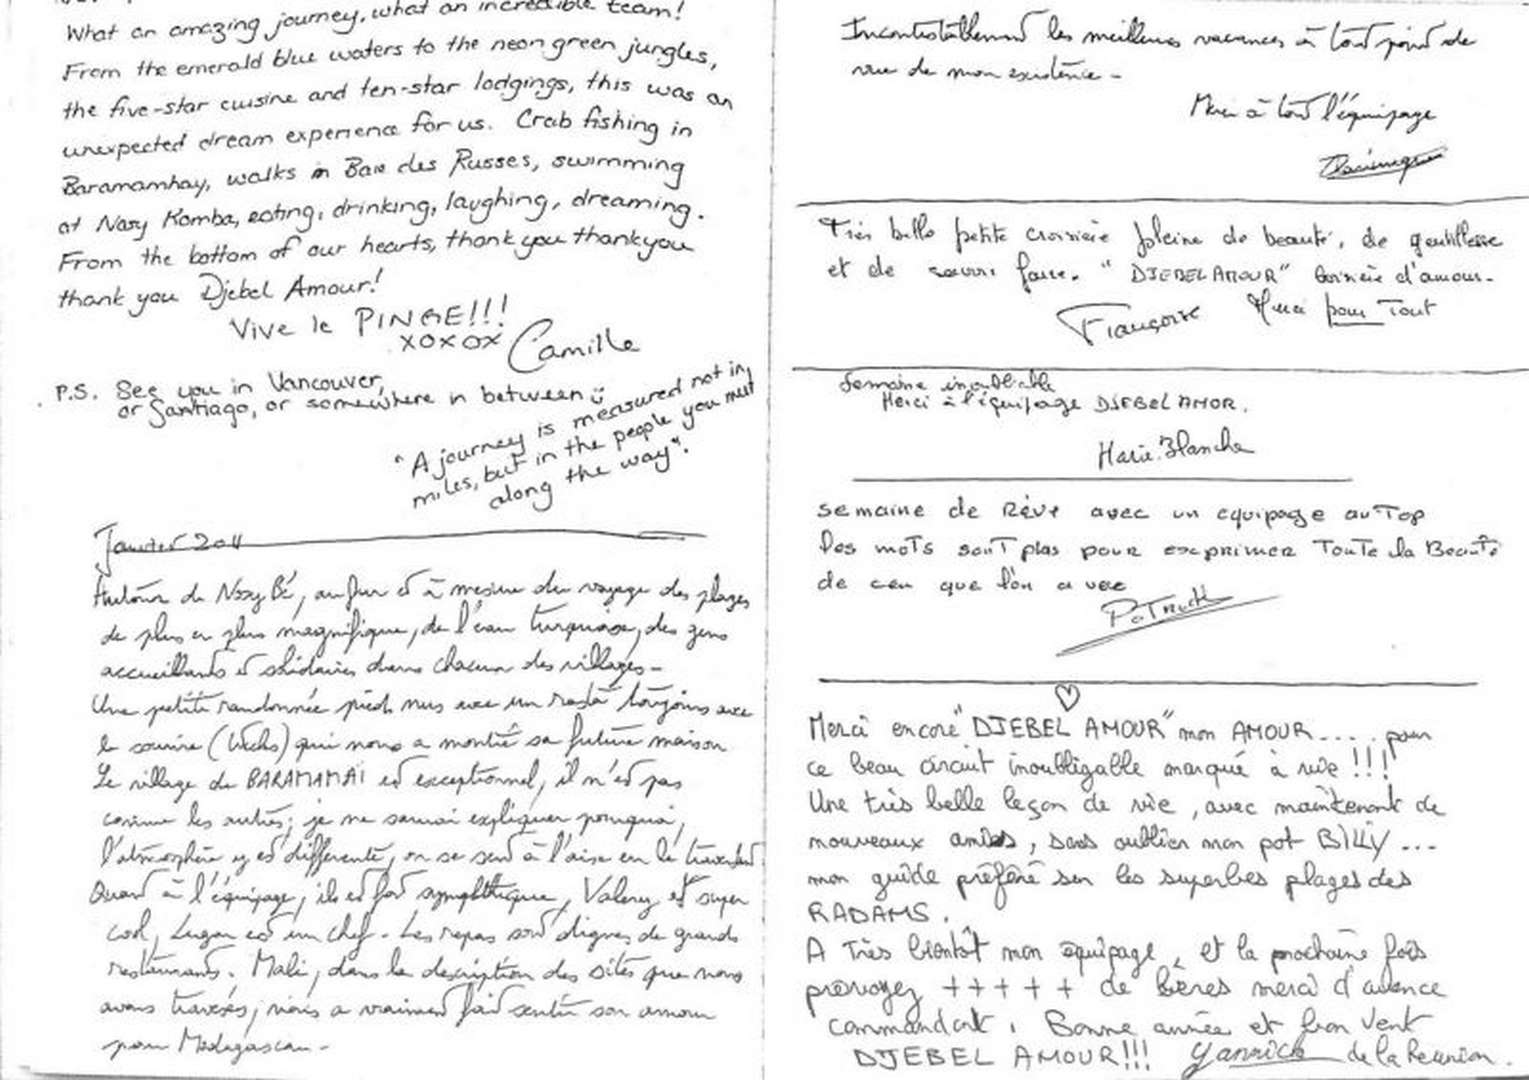 What an amazing journey, what an incredible team!
From the emerald blue waters to the neon green jungles,
the five-star cuisine and ten-star lodgings, this was an
unexpected dream experience for us. Crab fishing in
Baramamhay, walks in Baie des Russes, swimming
at Nosy Komba, eating, drinking, laughing, dreaming.
From the bottom of our hearts, thank you thank you
thank you Djebel Amour!
Vive le PINGE!!!
xoxox Camille
P.S. See you in Vancouver,
or Santiago, or somewhere in between
"A journey is measured not in
miles, but in the people you meet
along the way".
Janvier 2011
Autour de Nosy Bé, au fur et à mesure du voyage des plages
de plus en plus magnifique, de l'eau turquoise, des gens
accueillants et solidaires dans chacun des villages-
Une petite randonnée pieds nus avec un rasta toujours avec
le sourire ( ) qui nous a montré sa future maison
Le village de BARAMAMAI est exceptionnel, il n'est pas
comme les autres; je ne saurai expliquer pourquoi,
l'atmosphère y est différente, on se sent à l'aise en le
Quant à l'équipage, ils est fort symphthique, Valery est super
cool, Lugan est un chef. Les repas sont dignes de grands
restaurants. Mali, dans la description des sites que nous
avons traversés, nous a vraiment fait sentir son amour
pour Madagascar-
Incontestablement les meilleures vacances à tout point de
vue de mon existence-
Merci à tout l'équipage
Très belle petite croisière pleine de beauté, de gentillesse
et de savoir faire. "DJEBEL AMOUR" d'amour.
Françoise Merci pour Tout
Semaine inoubliable
Merci à l'équipage DJEBEL AMOR.
Marie.Blanche
semaine de Rêve avec un equipage au Top
Les mots sont plas pour exprimer Toute la Beauté
de ceu que l'on a vec
Patrick
Merci encore "DJEBEL AMOUR" mon AMOUR..... pour
ce beau circuit inoubligable marqué à vie !!!
Une très belle leçon de vie, avec maintenant de
nouveaux amies, sans oublier mon pot BILLY ...
mon guide préféré sur les superbes plages des
RADAMS.
A Très bientôt mon équipage, et la prochaine fois
prévoyez +++++ de bières merci d'avance
commandant. Bonne année et bon vent
DJEBEL AMOUR!!! Yannick de la Réunion.